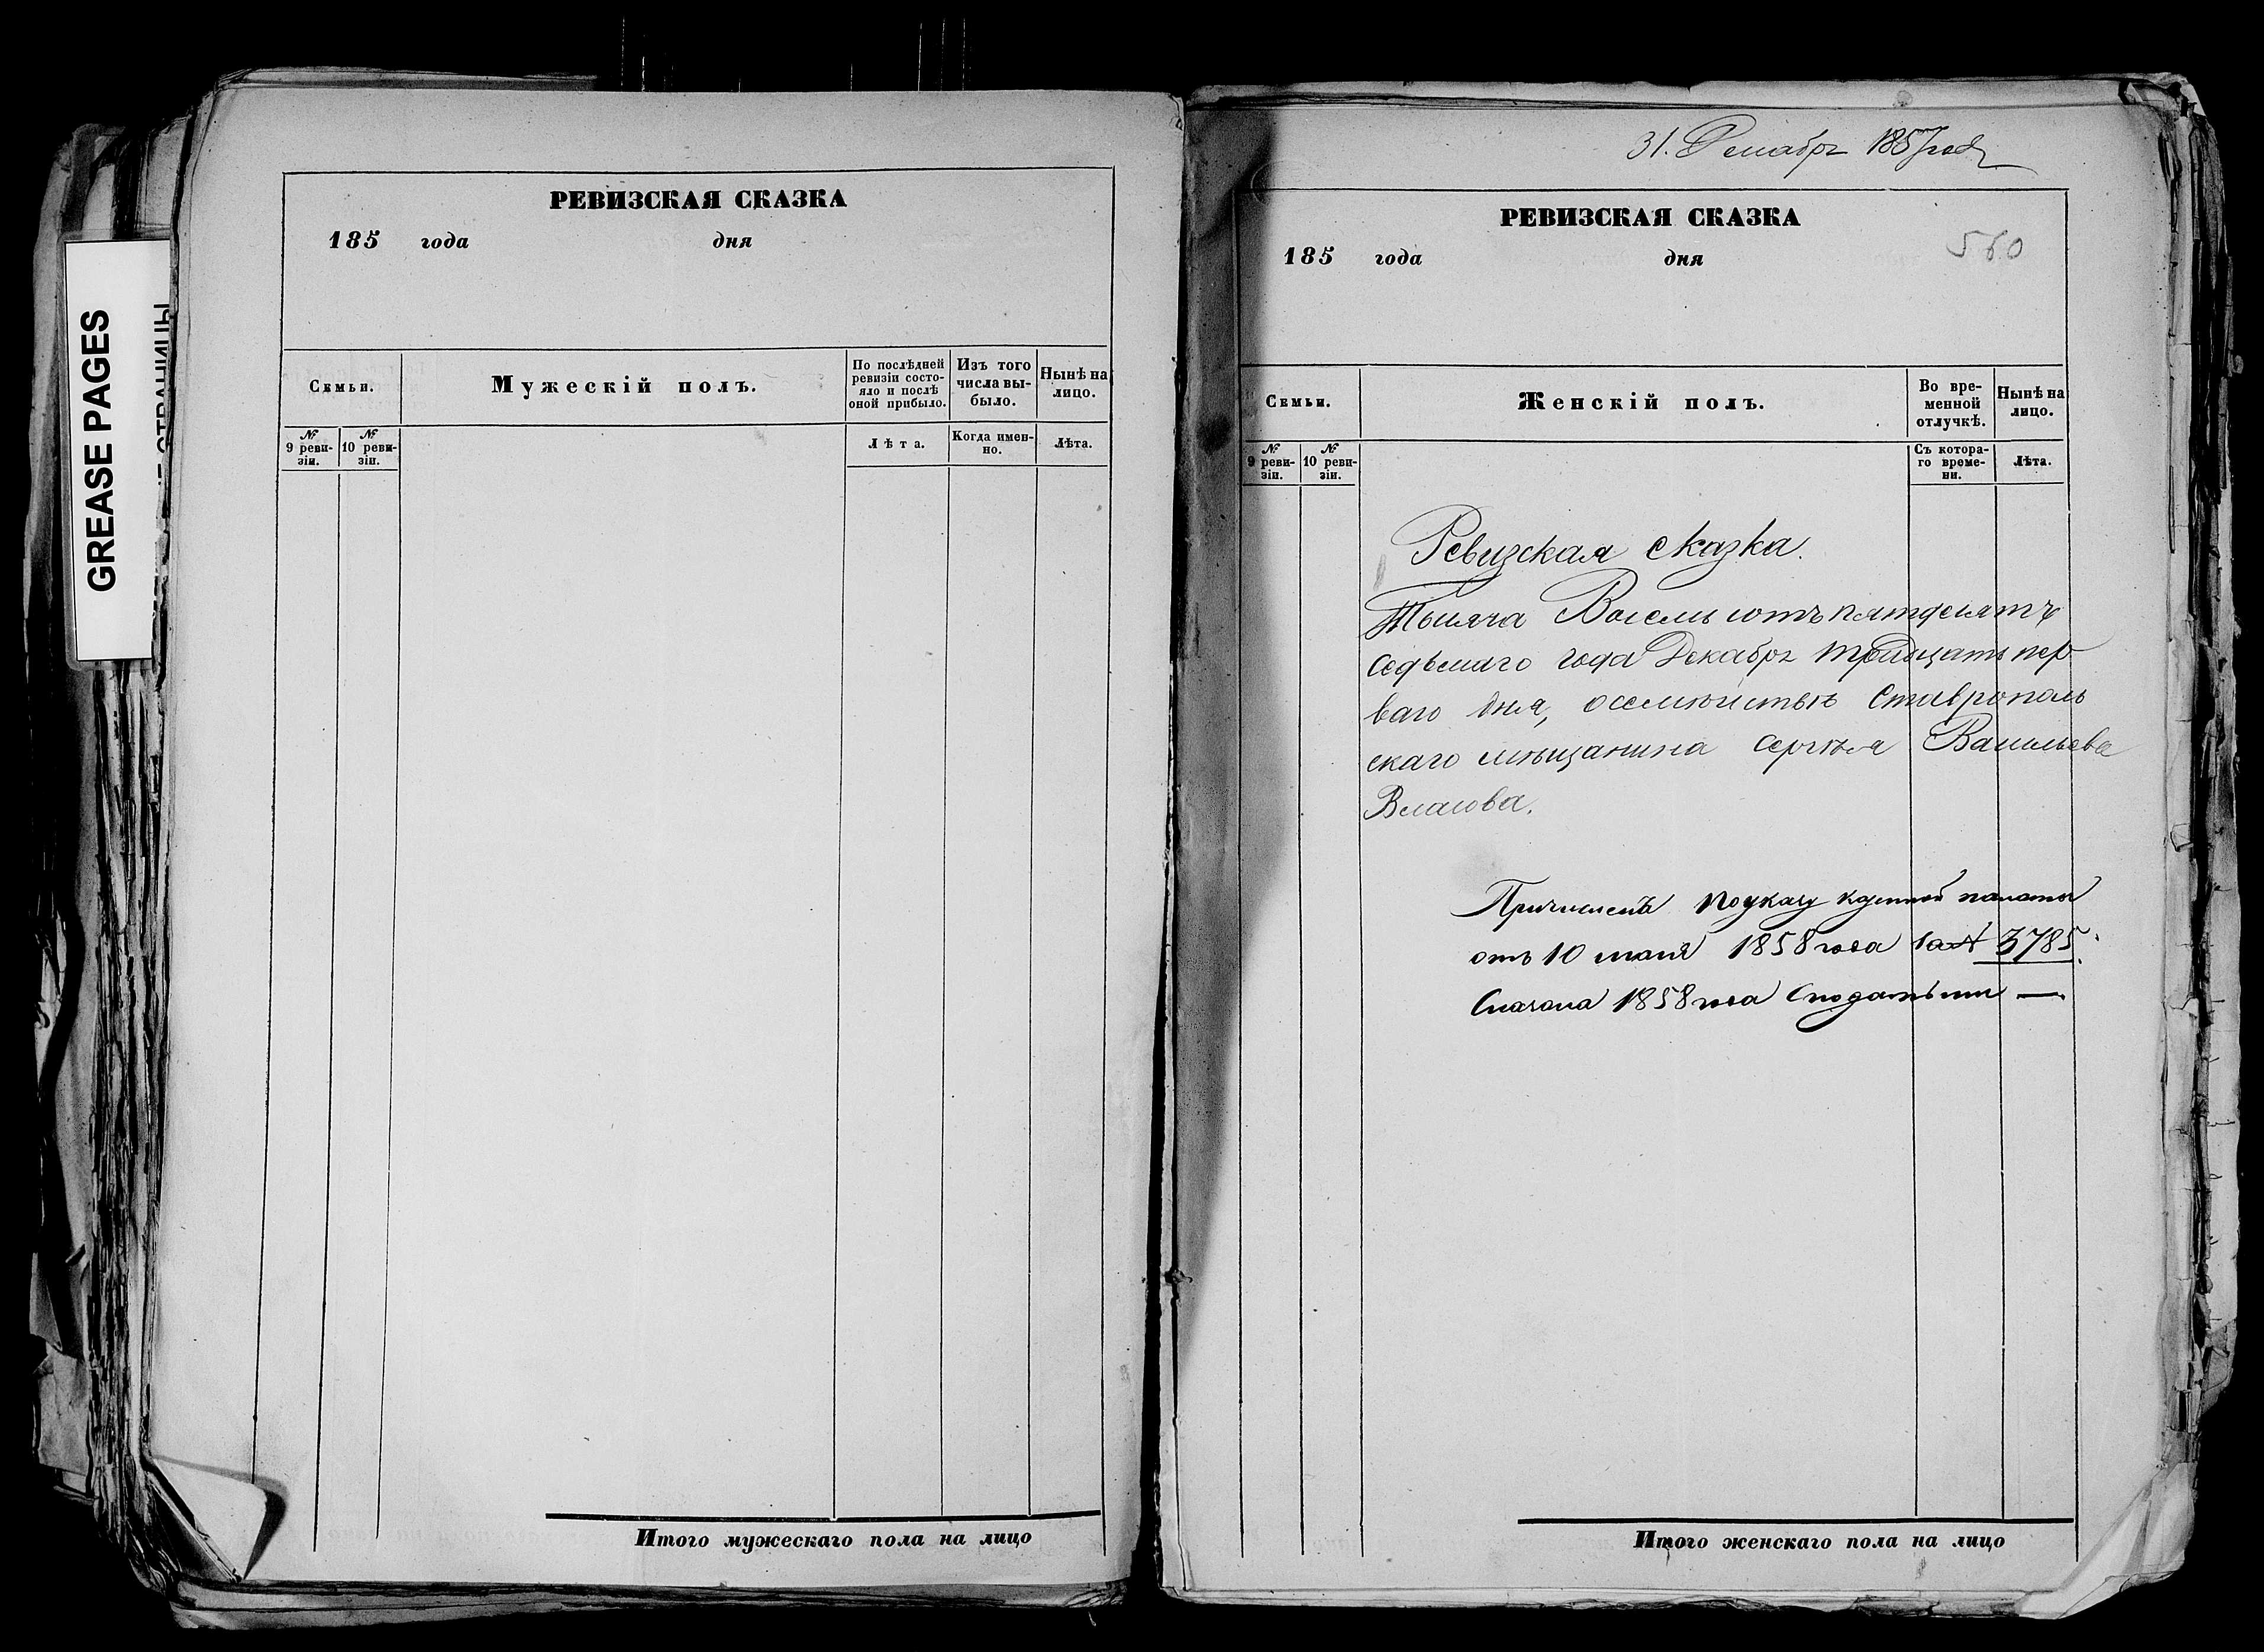 GREASE PAGES
РЕВИЗСКАЯ СКАЗКА
185 года дня
Семьи.
Мужескій полъ.
По послѣдней
ревизіи состо-
яло и послѣ
оной прибыло.
Изъ того
числа вы-
было.
Нынѣ на
лицо.
№
9 реви-
зіи.
№
10 реви-
зіи.
Лѣта.
Когда имен-
но.
Лѣта.
Итого мужескаго пола на лицо
31. Декабря 1857 года
РЕВИЗСКАЯ СКАЗКА
560
185 года дня
Семьи.
Женскій полъ.
Во вре-
менной
отлучкѣ.
Нынѣ на
лицо.
№
9 реви-
зіи.
№
10 реви-
зіи.
Съ котора-
го време-
ни.
Лѣта.
Ревизская сказка.
Тысяча Восемь сотъ пятдесятъ
седьмаго года Декабря тридцать пер
ваго дня, о семѣйствѣ Ставрополь
скаго мѣщанина Сергѣя Васильева
Власова.
Причислена по указу казенной палаты
отъ 10 маія 1858 года за № 3785.
Сначала 1858 года Сподатьми —
Итого женскаго пола на лицо